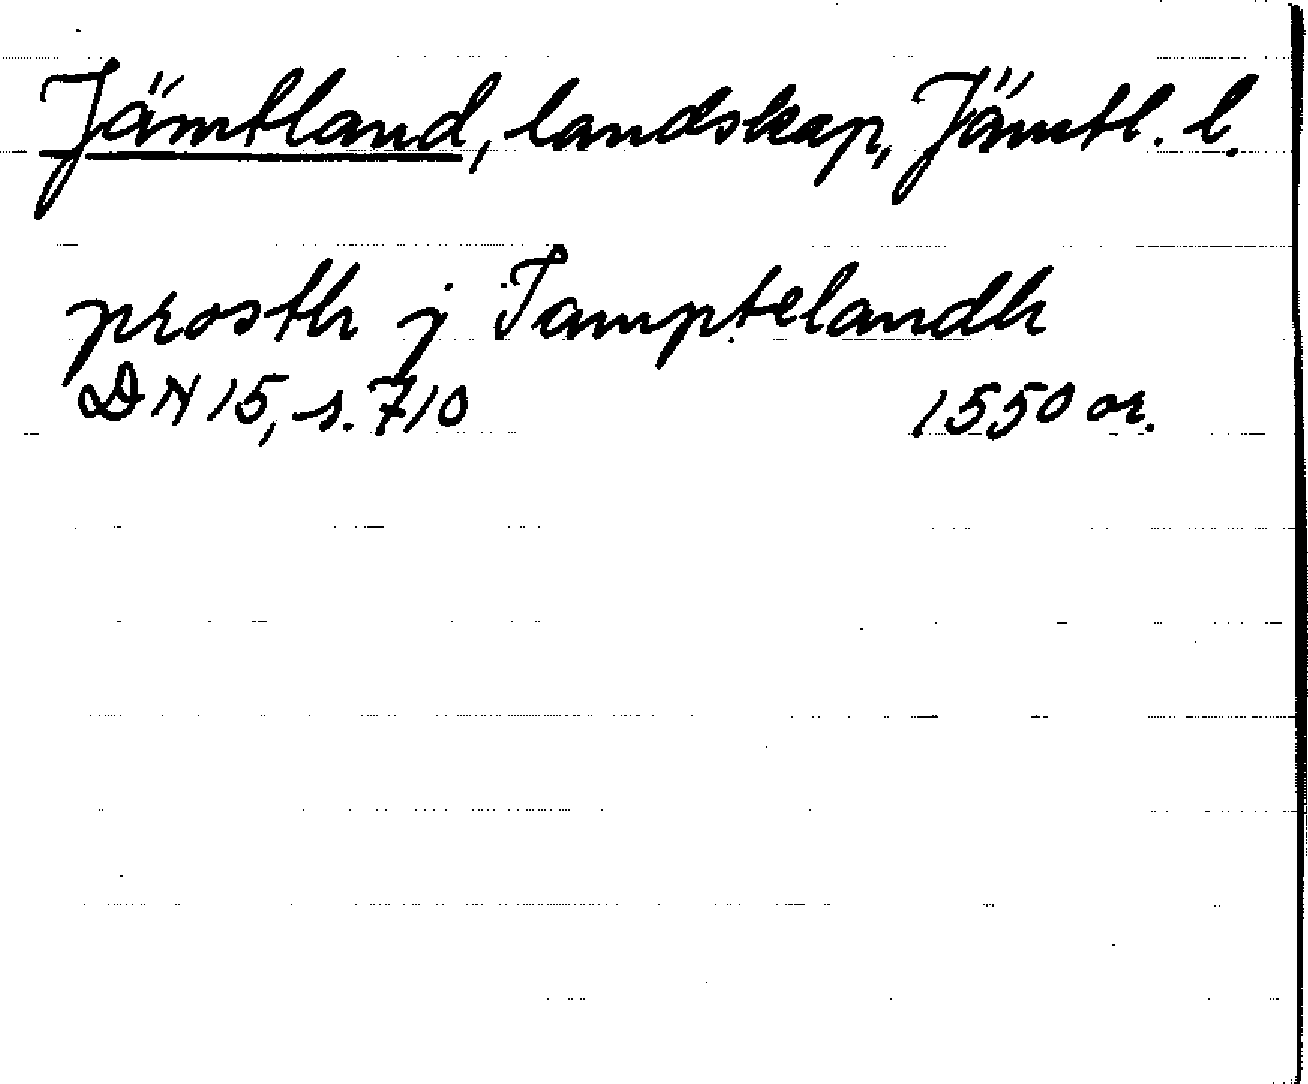 Jämtland, landskap, Jämtl. l.
prosth j Iamptelandh
DN 15, s. 710 1550 or.